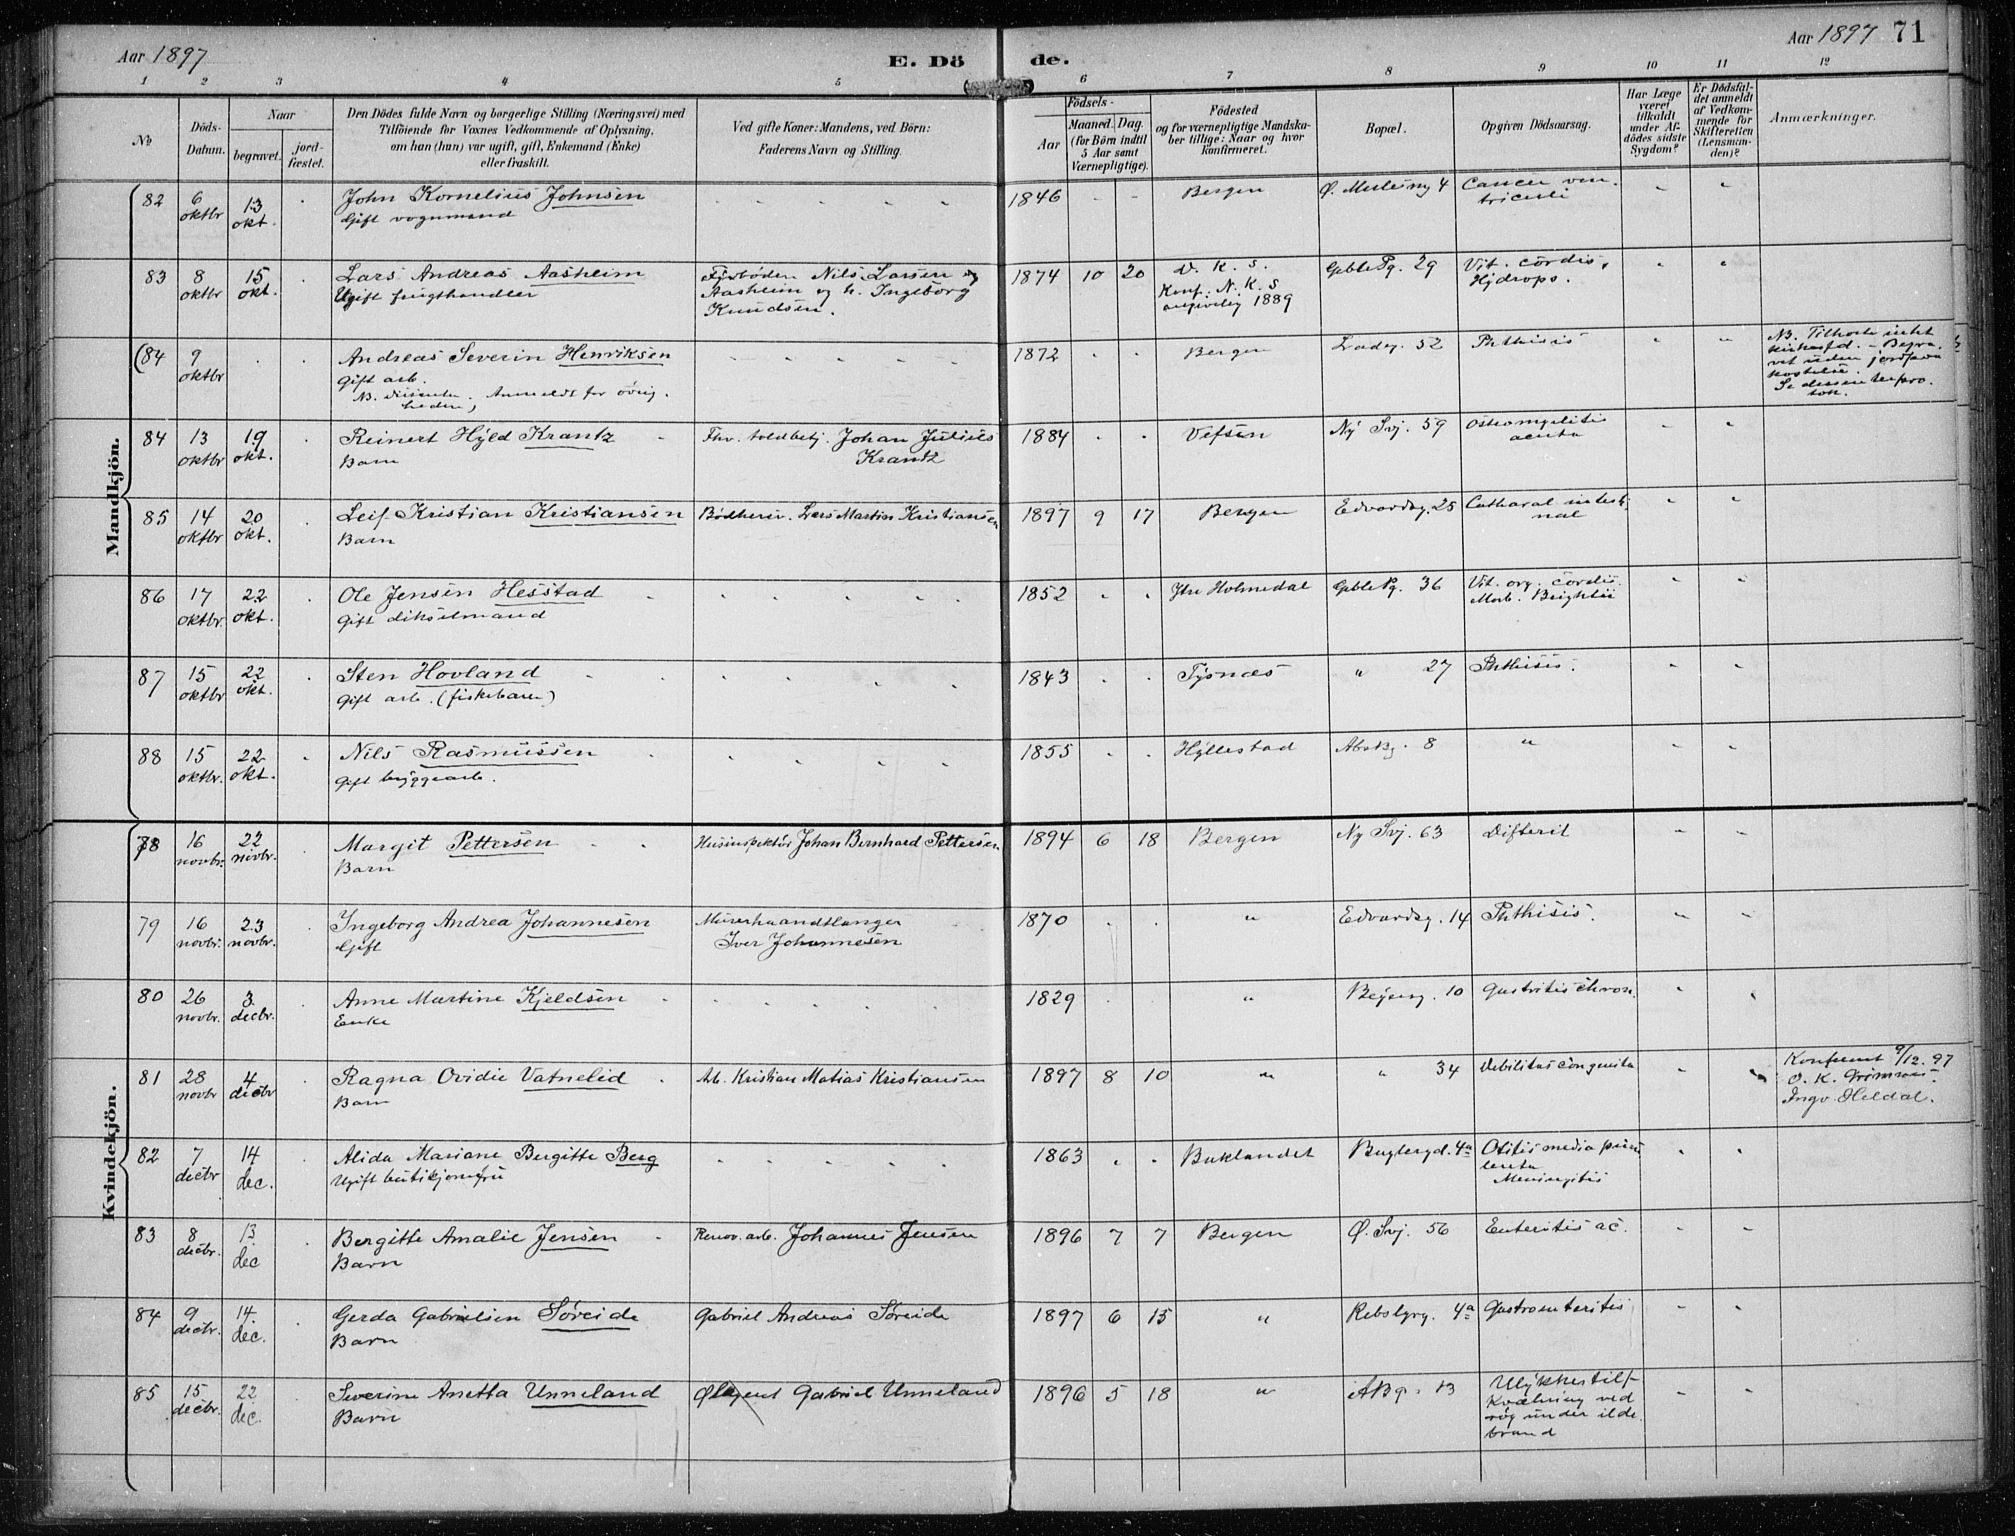 Aar 1897
E. Döde.
Aar 1897 71
1 2 3 4 5 6 7 8 9 10 11 12
No
Döds-Datum.
Naar
begravet.
jordfæstet.
Den Dödes fulde Navn og borgerlige Stilling (Næringsvei) med
Tilföiende for Voxnes Vedkommende af Oplysning,
om han (hun) var ugift, gift, Enkemand (Enke)
eller fraskilt.
Ved gifte Koner: Mandens, ved Börn:
Faderens Navn og Stilling.
Födsels-
Aar
Maaned. Dag.
(for Börn indtil
5 Aar samt
Værnepligtige).
Födested
og for værnepligtige Mandska-
ber tillige: Naar og hvor
konfirmeret.
Bopæl.
Opgiven Dödsaarsag.
Har Læge
været
tilkaldt
under Af-
dödes sidste
Sygdom?
Er Dödsfal-
det anmeldt
af Vedkom-
mende for
Skifteretten
(Lensman-
den)?
Anmærkninger.
Mandkjön.
82 6 oktbr 13 okt. John Kornelius Johnsen 1846 Bergen Ø. Muleimg 4 Cancer ven-
Gift vognmand triculi
83 8 oktbr 15 okt. Lars Andreas Aasheim Nils Larsen 1874 10 20 D. K. S. 29 Vit. cordis,
Ugift frugthandler Aasheim og h. Ingeborg Konf. N. K. S Hydrops.
Knudsen. angivelig 1889
(84 9 oktbr Andreas Severin Henriksen 1872 Bergen Ladeg. 52 Phthisis NB. Tilhørte intet
Gift arb. uden jordpaa
NB. Anmeldt for øvrig- kastelse.
heden)
84 13 oktbr 19 okt. Reinert Hyld Krantz Fhv. toldbetj. Johan Julius 1884 Vefsen Ny Svj. 59 Osteomyelitis
Barn Krantz acuta
85 14 oktbr 20 okt. Leif Kristian Kristiansen Lars Martin Kristiansen 1897 9 17 Bergen Edvardsg. 25 Catharal intesti-
Barn nal
86 17 oktbr. 22 okt. Ole Jensen Hesstad 1852 Ytre Holmedal 36 Vit. org. cordis.
Gift Morb. Brightii
87 15 oktbr 22 okt. Sten Hovland 1843 Tysnæs " 27 Phthisis.
Gift arb. (fiskebaren)
88 15 oktbr. 22 okt. Nils Rasmussen 1855 Hyllestad 8 "
Gift bryggearb.
Kvindekjön.
78 16 novbr. 22 novbr. Margit Pettersen Husinspektør Johan Bernhard Pettersen 1894 6 18 Bergen Ny Svj. 63 Difterit
Barn
79 16 novbr. 23 novbr. Ingeborg Andrea Johannesen Murerhaandtlanger 1870 " Edvardsg. 14 Phthisis.
Gift Iver Johannesen
80 26 novbr. 3 decbr. Anne Martine Kjeldsen 1829 " 10 Gastritis chron.
Enke
81 28 novbr 4 decbr Ragna Ovidie Vatnelid Arb. Kristian Matias Kristiansen 1897 8 10 " " 34 Debilitas congenita Konferert 9/12. 97
Barn O. K.
Ingv. Heldal.
82 7 decbr 14 dec. Alida Mariane Bergitte Berg 1863 Buklandet 4a Otitis media puru-
Ugift butikjomfru lenta
Meningitis
83 8 decbr. 13 dec Bergitte Amalie Jensen Renov. arb. Johannes Jensen 1896 7 7 Bergen Ø. Svj. 56 Enteritis ac.
Barn
84 9 decbr. 14. dec. Gerda Gabrielsen Søreide Gabriel Andreas Søreide 1897 6 15 " 4a Gastroenteritis
Barn
85 15 decbr. 22 dec. Severine Anetta Unneland Gabriel Unneland 1896 5 18 " 13 Ulykkestilf.
Barn Kvælning ved
røg under ilde-
brand